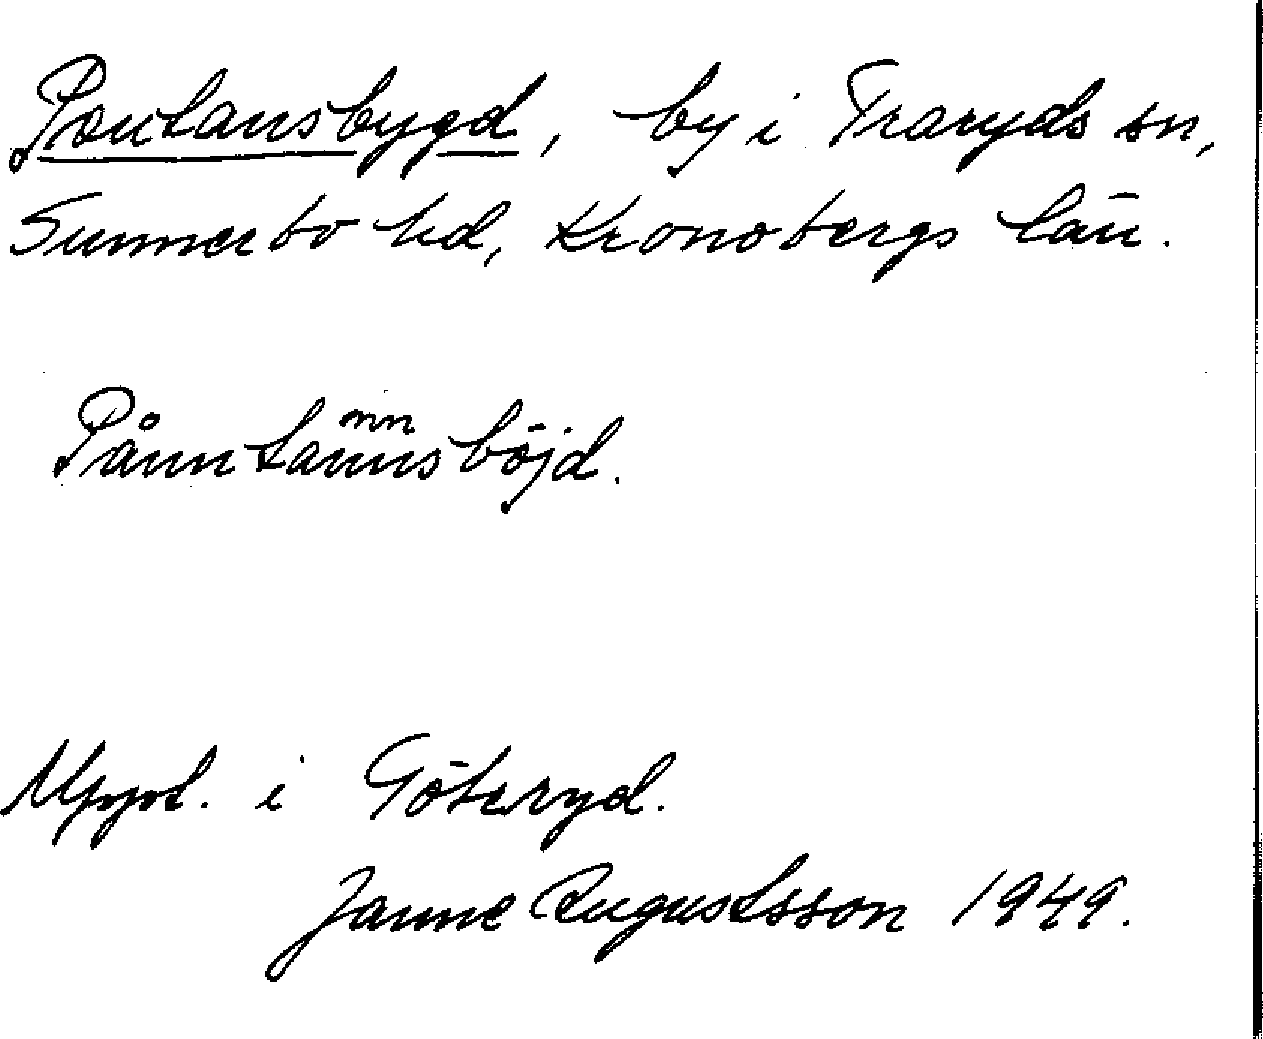 Pontansbygd, by i Traryds sn,
Sunnerbo hd, Kronobergs län.
nn
Pånntannsböjd.
Uppt. i Göteryd.
Janne Augustsson 1949.